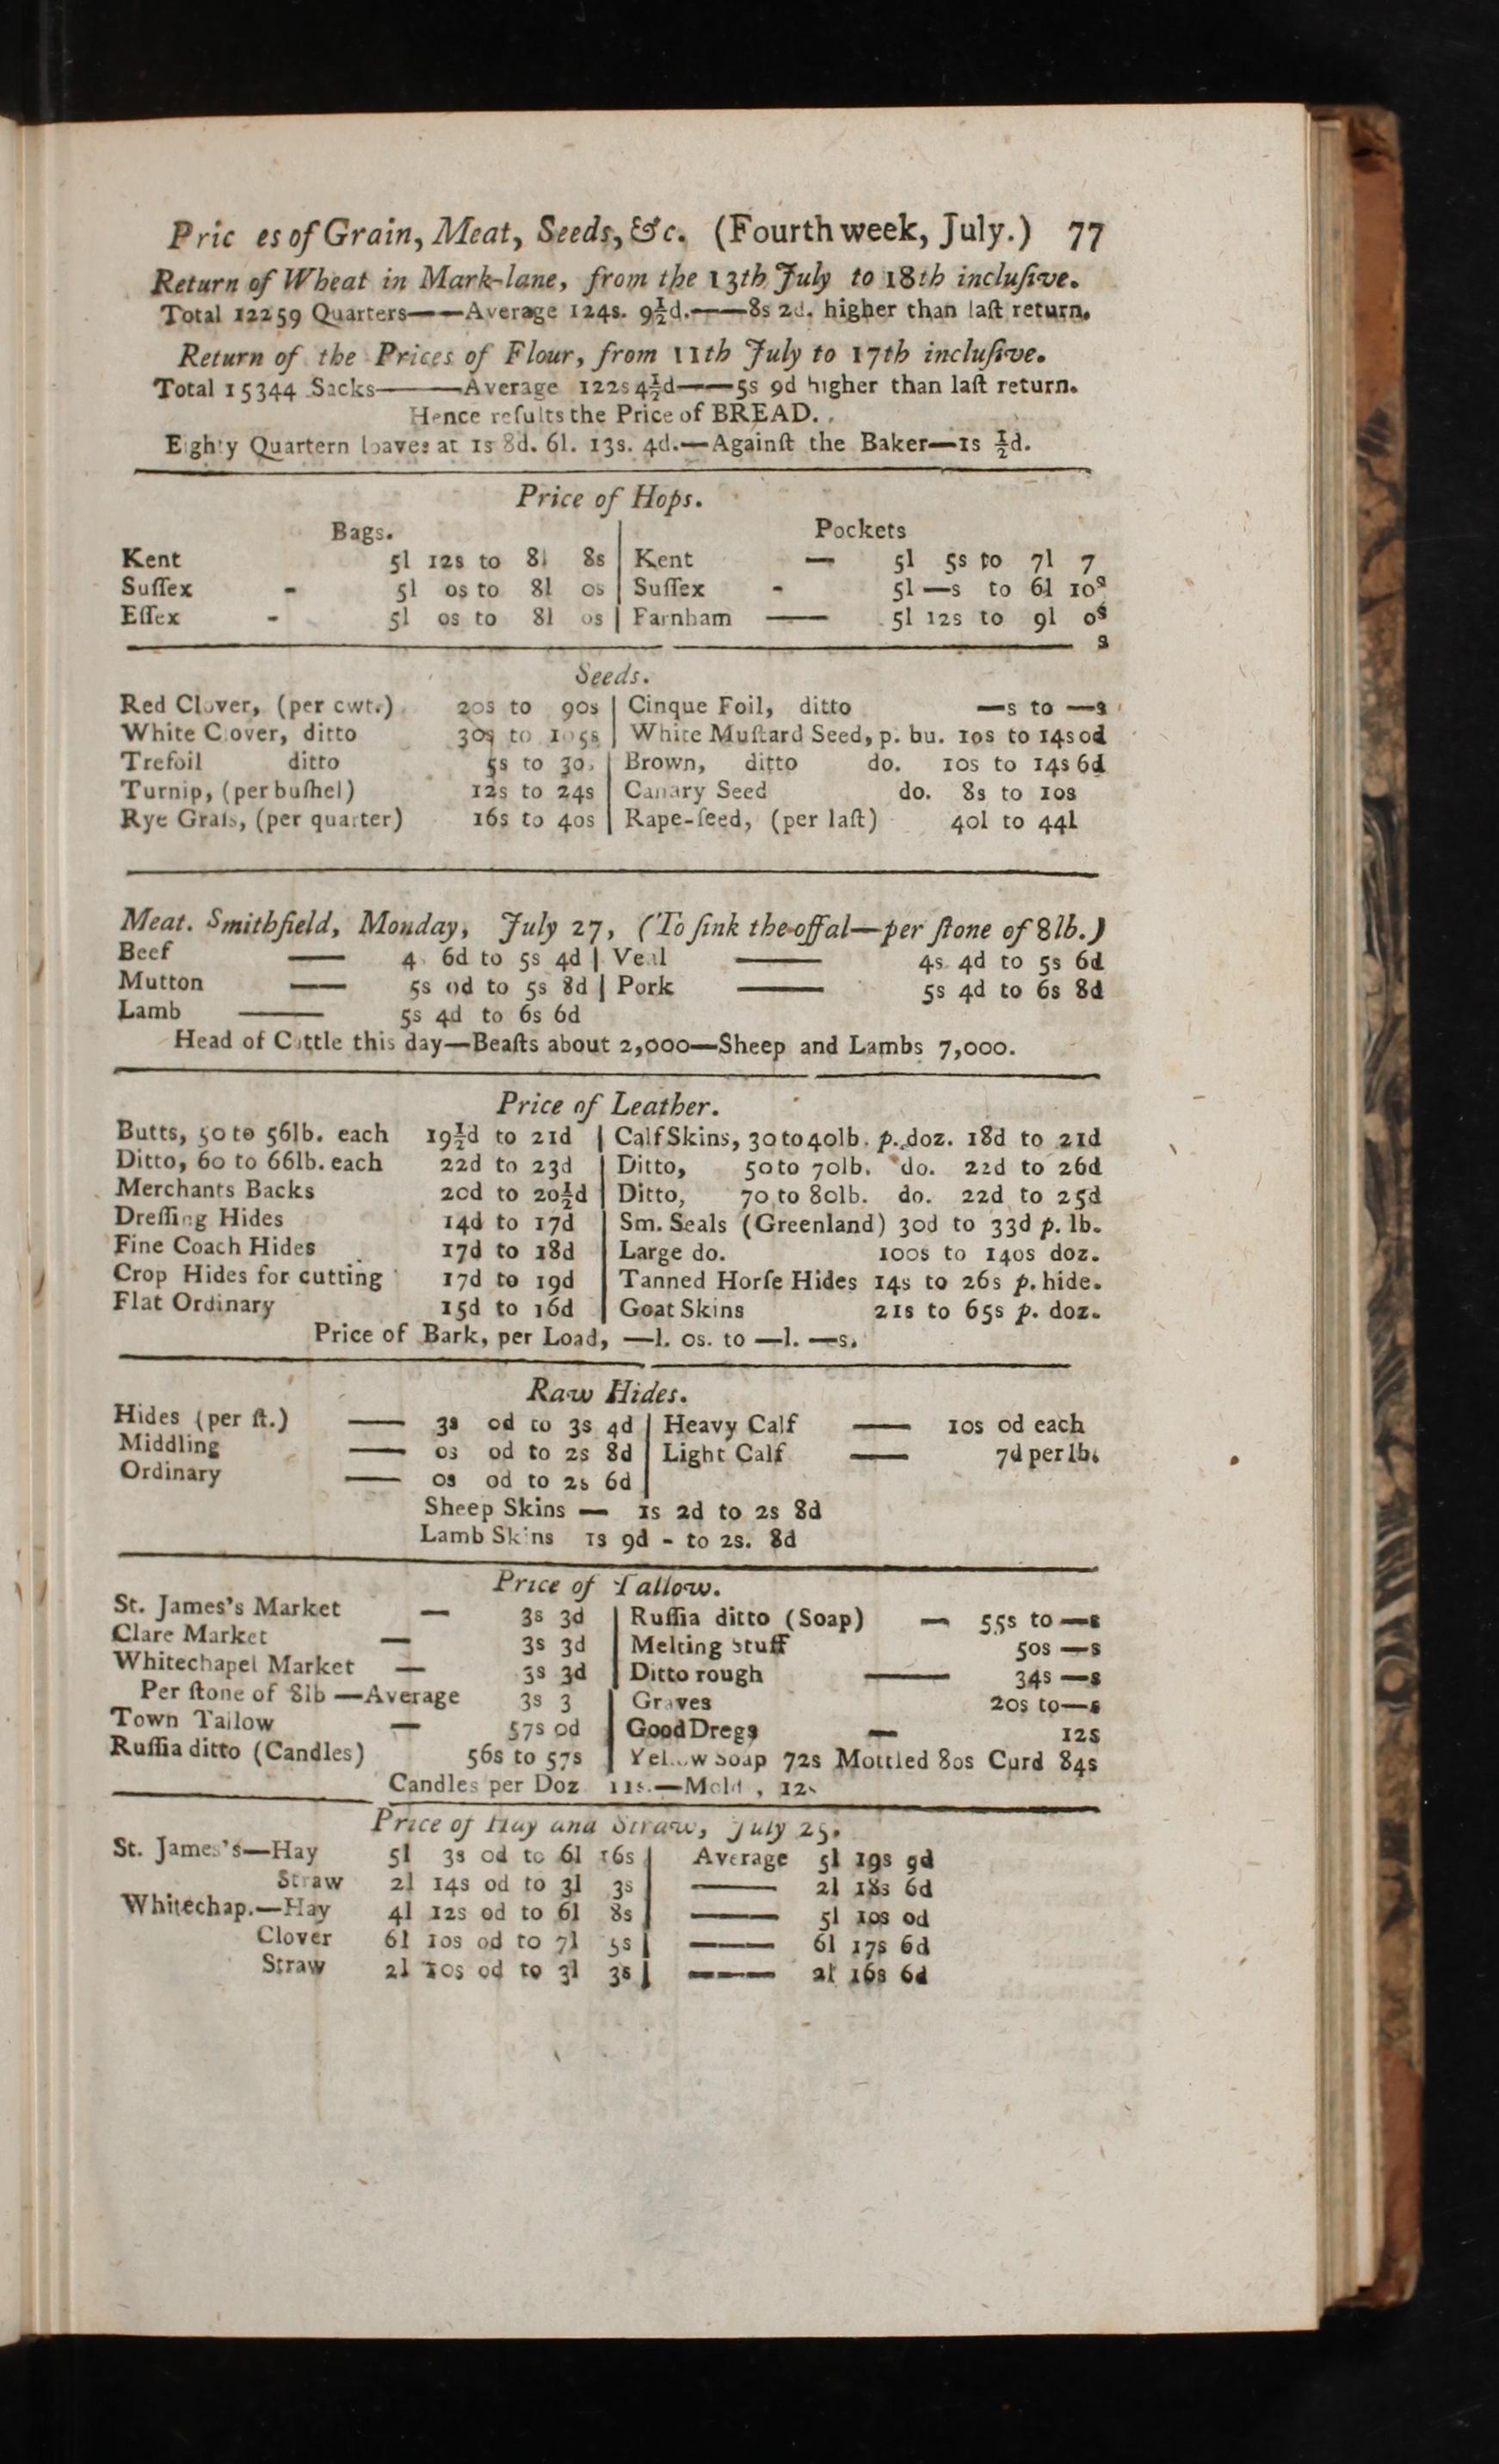 Pric es of Grain, Meat, Seeds, &c. (Fourth week, July.) 77
Return of Wheat in Mark-lane, from the 13th July to 18th incluſive.
Total 12259 Quarters——Average 124s. 9½d.——8s 2d. higher than laſt return.
Return of the Prices of Flour, from 11th July to 17th incluſive.
Total 15344 Sacks———Average 122s 4½d——5s 9d higher than laſt return.
Hence reſults the Price of BREAD.
Eighty Quartern loaves at 1s 8d. 6l. 13s. 4d.—Againſt the Baker—1s ½d.
Price of Hops.
Bags. Pockets
Kent 5l 12s to 8l 8s | Kent — 5l 5s to 7l 7
Suſſex - 5l 0s to 8l 0s | Suſſex - 5l —s to 6l 10s
Eſſex - 5l 0s to 8l 0s | Farnham —— 5l 12s to 9l 0s
s
Seeds.
Red Clover, (per cwt.) 20s to 90s | Cinque Foil, ditto —s to —s
White Clover, ditto 30s to 105s | White Muſtard Seed, p. bu. 10s to 14s 0d
Trefoil ditto 5s to 30s | Brown, ditto do. 10s to 14s 6d
Turnip, (per buſhel) 12s to 24s | Canary Seed do. 8s to 10s
Rye Graſs, (per quarter) 16s to 40s | Rape-ſeed, (per laſt) 40l to 44l
Meat. Smithfield, Monday, July 27, (To ſink the offal—per ſtone of 8lb.)
Beef —— 4 6d to 5s 4d | Veal —— 4s 4d to 5s 6d
Mutton —— 5s 0d to 5s 8d | Pork —— 5s 4d to 6s 8d
Lamb —— 5s 4d to 6s 6d
Head of Cattle this day—Beaſts about 2,000—Sheep and Lambs 7,000.
Price of Leather.
Butts, 50 to 56lb. each 19½d to 21d | Calf Skins, 30 to 40lb. p. doz. 18d to 21d
Ditto, 60 to 66lb. each 22d to 23d | Ditto, 50 to 70lb. do. 22d to 26d
Merchants Backs 20d to 20½d | Ditto, 70 to 80lb. do. 22d to 25d
Dreſſing Hides 14d to 17d | Sm. Seals (Greenland) 30d to 33d p. lb.
Fine Coach Hides 17d to 18d | Large do. 100s to 140s doz.
Crop Hides for cutting 17d to 19d | Tanned Horſe Hides 14s to 26s p. hide.
Flat Ordinary 15d to 16d | Goat Skins 21s to 65s p. doz.
Price of Bark, per Load, —l. 0s. to —l. —s.
Raw Hides.
Hides (per ſt.) —— 3s 0d to 3s 4d | Heavy Calf —— 10s 0d each
Middling —— 0s 0d to 2s 8d | Light Calf —— 7d per lb.
Ordinary —— 0s 0d to 2s 6d |
Sheep Skins — 1s 2d to 2s 8d
Lamb Skins 1s 9d - to 2s. 8d
Price of Tallow.
St. James's Market — 3s 3d | Ruſſia ditto (Soap) — 55s to —s
Clare Market — 3s 3d | Melting Stuff 50s —s
Whitechapel Market — 3s 3d | Ditto rough —— 34s —s
Per ſtone of 8lb —Average 3s 3 | Graves 20s to —s
Town Tallow — 57s 0d | Good Dregs — 12s
Ruſſia ditto (Candles) 56s to 57s | Yellow Soap 72s Mottled 80s Curd 84s
Candles per Doz 11s.—Mold , 12s
Price of Hay and Straw, July 25.
St. James's—Hay 5l 3s 0d to 6l 16s | Average 5l 19s 9d
Straw 2l 14s 0d to 3l 3s | —— 2l 18s 6d
Whitechap.—Hay 4l 12s 0d to 6l 8s | —— 5l 10s 0d
Clover 6l 10s 0d to 7l 5s | —— 6l 17s 6d
Straw 2l 10s 0d to 3l 3s | —— 2l 16s 6d